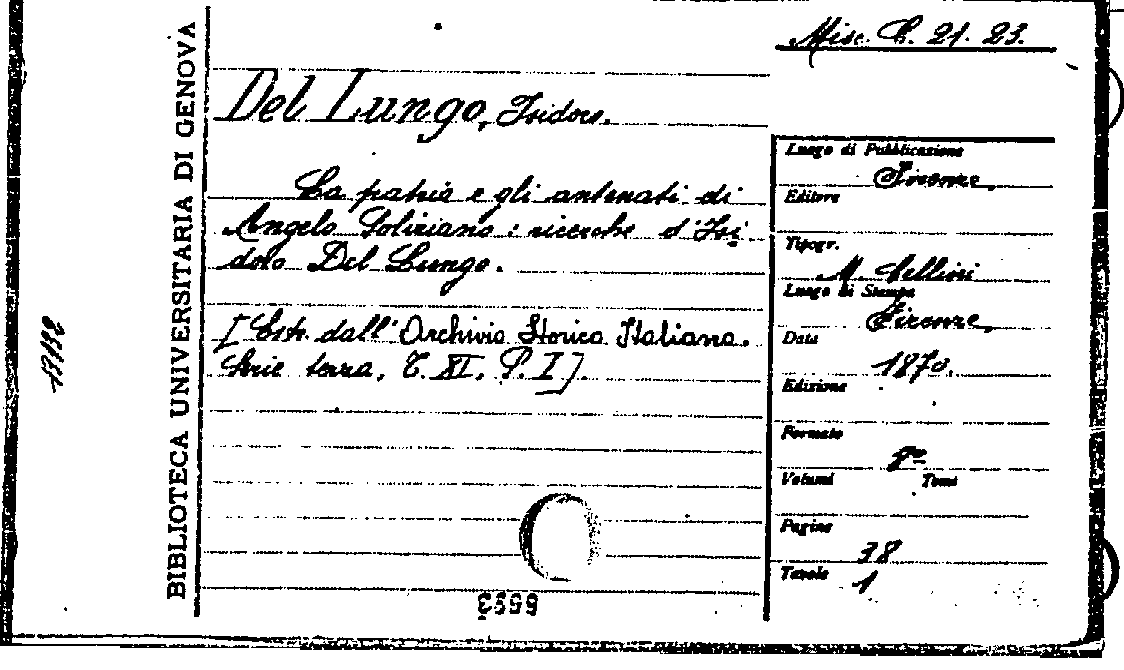 Misc. C. 21. 23.
BIBLIOTECA UNIVERSITARIA DI GENOVA
Del Lungo, Isidoro.
La patria e gli antenati di
Angelo Poliziano: ricerche d'Isi
doro Del Lungo.
[Estr. dall'Archivio Storico Italiano.
Serie terza, T. XI. P. I].
Luogo di Pubblicazione
Firenze.
Editore
Tipogr.
M. Cellini
Luogo di Stampa
Firenze.
Data
1870.
Edizione
Formato
8º
Volumi Tomi
Pagine
38
Tavole
1